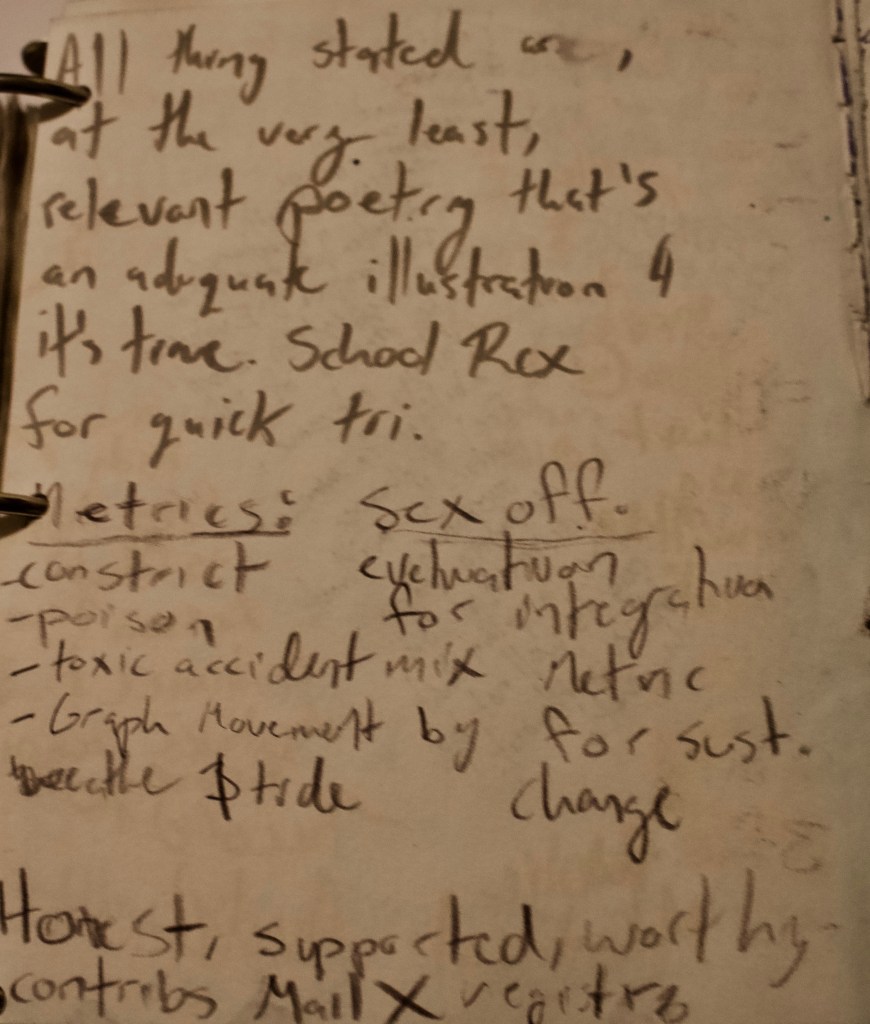 All thing stated are,
at the very least,
relevant poetry that's
an adequate illustration 4
it's time. School Rex
for quick tri.
Metrics: Sex off.
-constrict evaluation
-poison for integration
-toxic accident mix Metric
-Graph Movement by for sust.
breathe $ tide change
Honest, supported, worthy
contribs Mail X registry